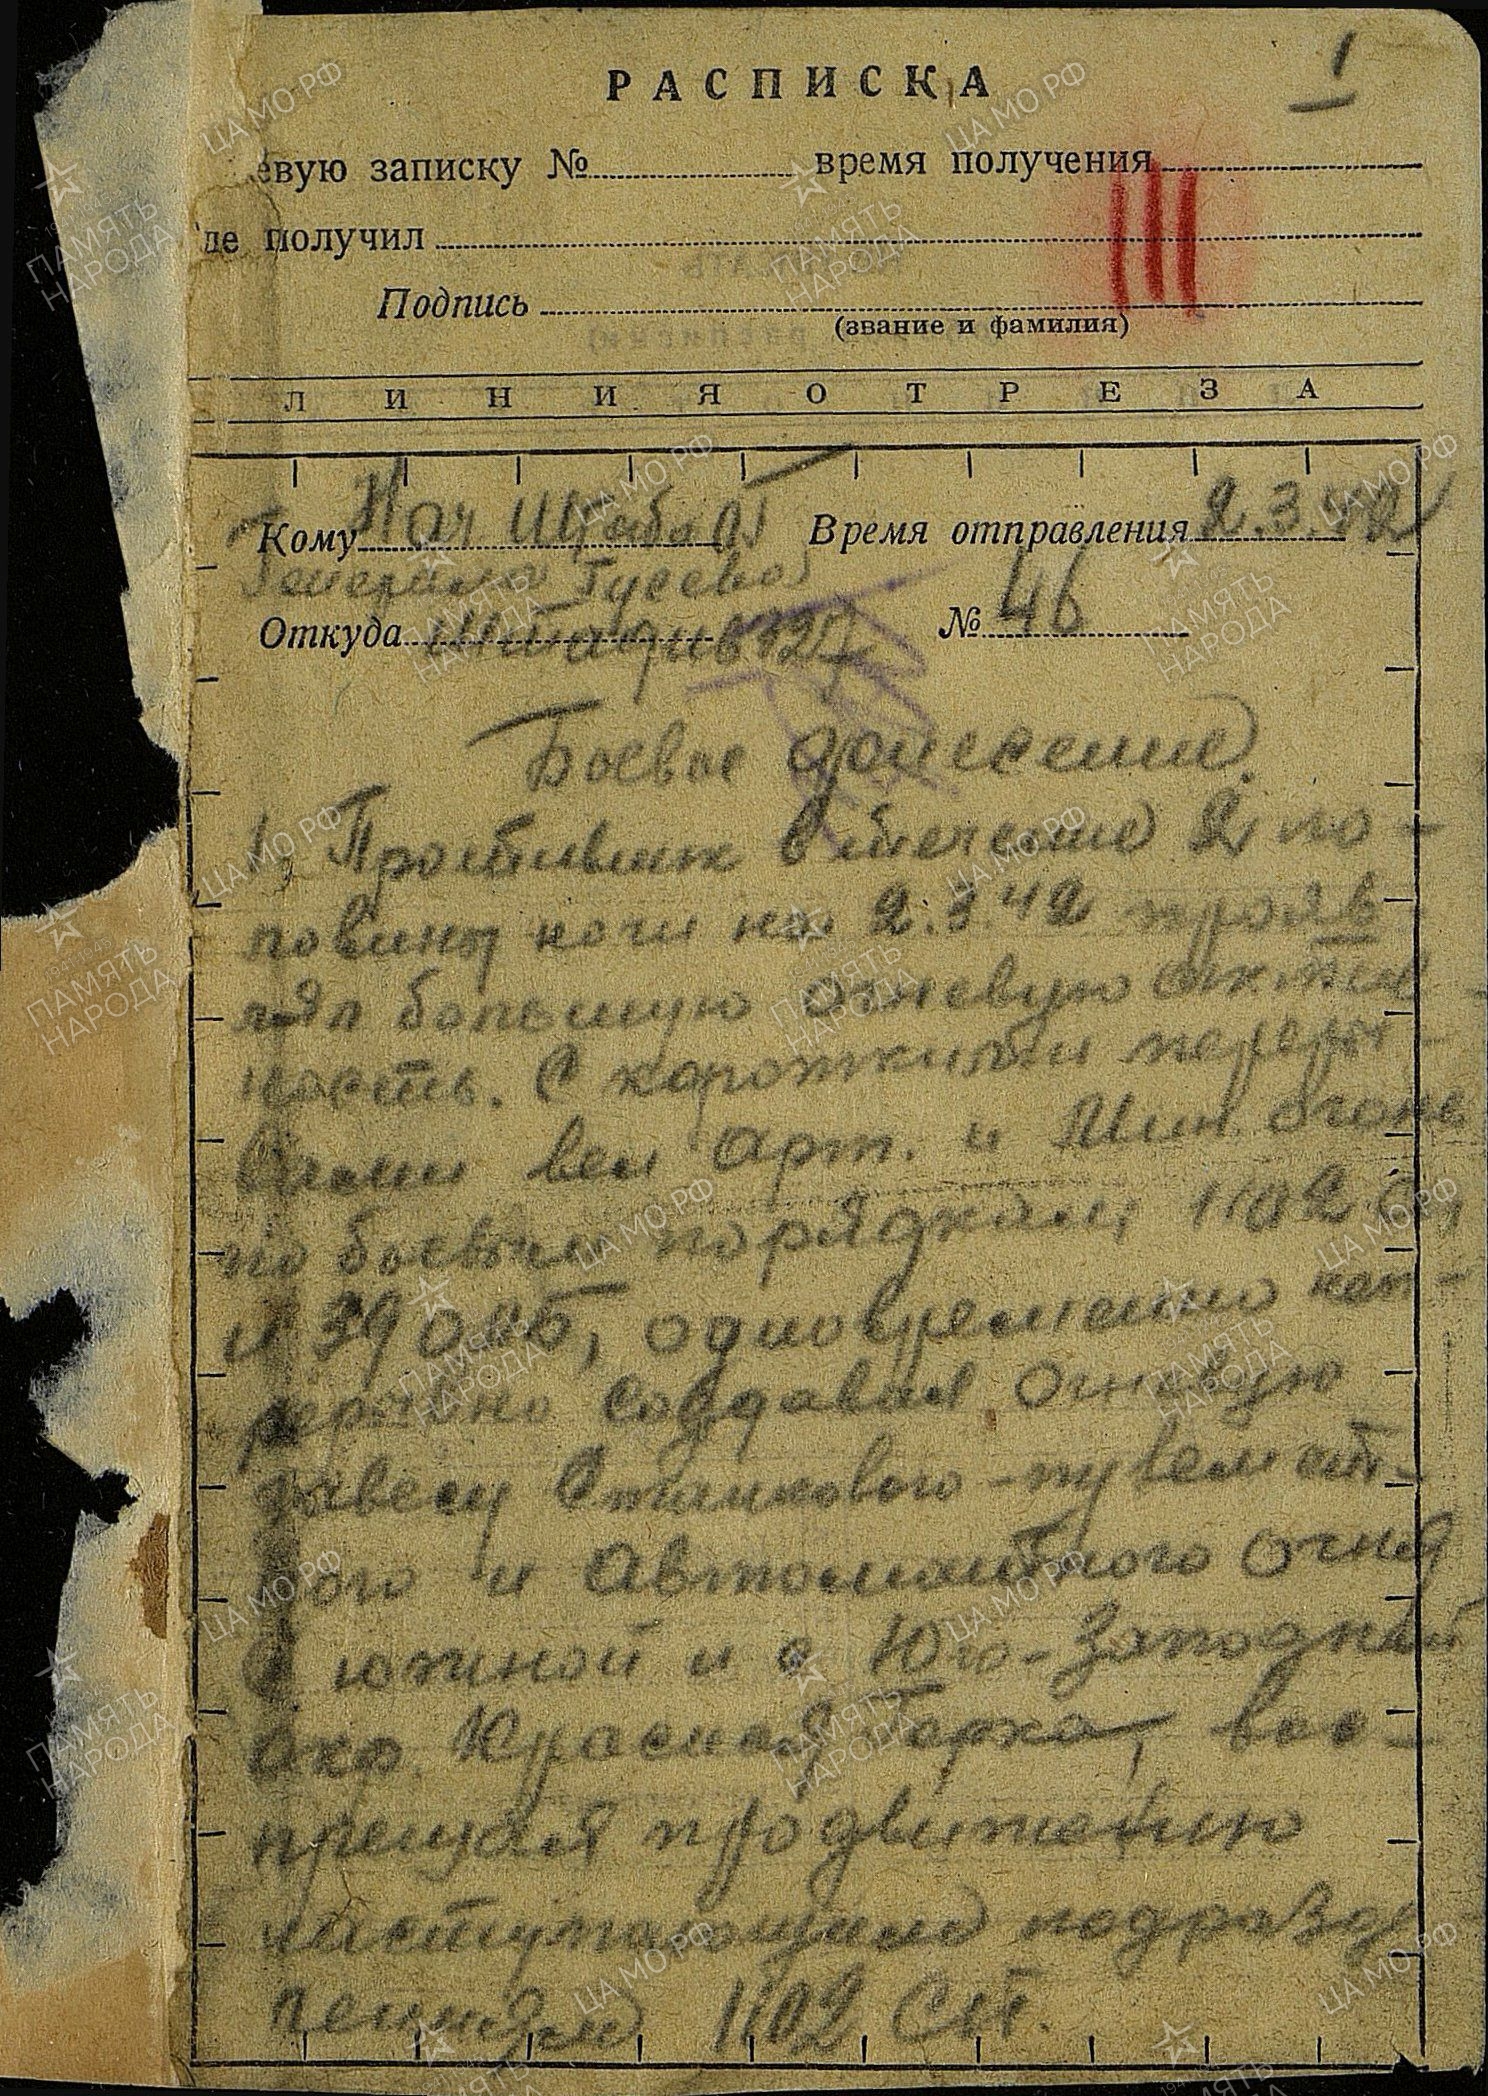 РАСПИСКА
1
евую записку № время получения
де получил
Подпись
(звание и фамилия)
ЛИНИЯ ОТРЕЗА
Кому Нач Штаба ОГ Время отправления 2.3.42
Генерала Гусева
Откуда Штадив 327 № 46
Боевое донесение.
1, Противник в течение 2 по-
ловины ночи на 2.3.42 прояв
лял большую огневую актив-
ность. С короткими переры-
вами вел Арт. и Мин. огонь
по боевым порядкам 1102 сп
и 39 олб, одновременно неп-
рерывно создавал огневую
завесу станково-пулемет-
ного и Автоматного огня
с южной и с Юго-Западной
окр. Красная Горка, вос-
прещая продвижению
наступающим подразде-
лениям 1102 СП.